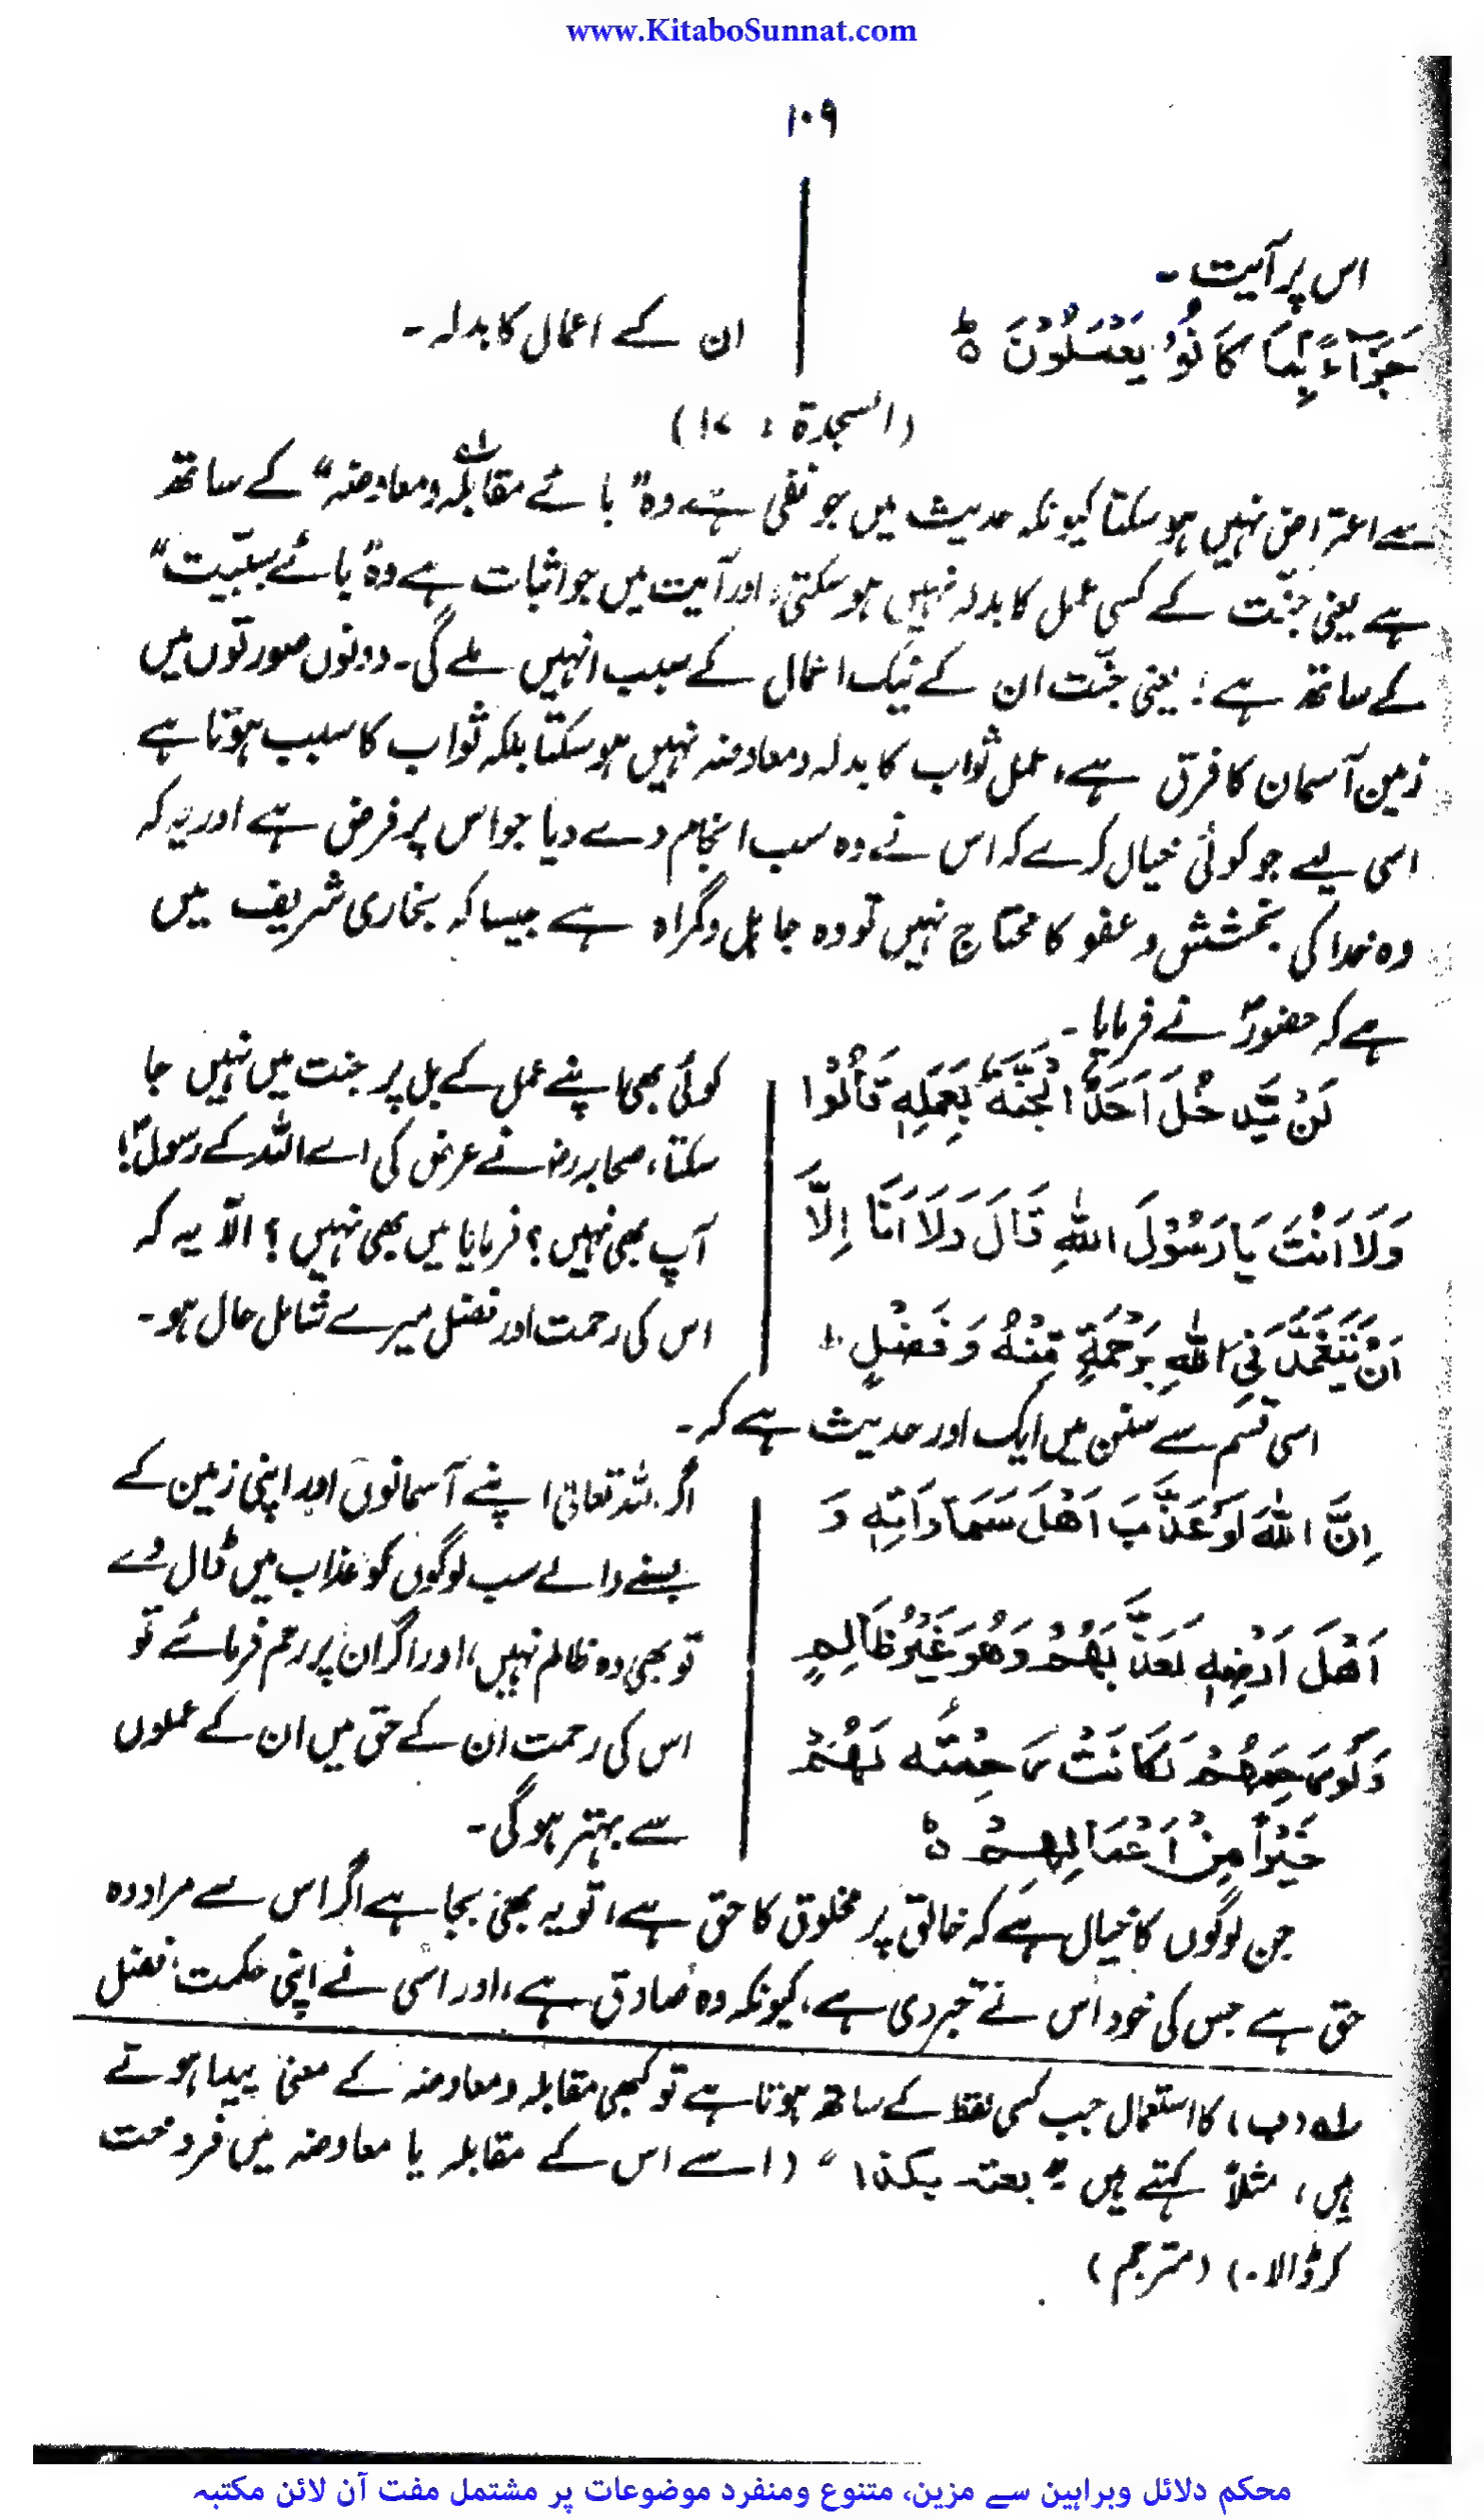 www.KitaboSunnat.com
۱۰۹
اس پر آیت۔
جَزَآءًۢ بِمَا كَانُوْا يَعْمَلُوْنَ ہ
ان کے اعمال کا بدلہ۔
(السجدة : ۱۷)
سے اعتراض نہیں ہو سکتا کیونکہ حدیث میں جو نفی ہے وہ "بائے مقابلہ ومعاوضہ" کے ساتھ
ہے یعنی جنّت کے کسی عمل کا بدلہ نہیں ہو سکتی، اور آیت میں جو اثبات ہے وہ "بائے سببیّت"
کے ساتھ ہے؛ یعنی جنّت ان کے نیک اعمال کے سبب انہیں ملے گی۔ دونوں صورتوں میں
زمین آسمان کا فرق ہے، عمل ثواب کا بدلہ ومعاوضہ نہیں ہو سکتا بلکہ ثواب کا سبب ہوتا ہے
اسی لیے جو کوئی خیال کرے کہ اس نے وہ سب انجام دے دیا جو اس پر فرض ہے اور یہ کہ
وہ خدا کی بخشش و عفو کا محتاج نہیں تو وہ جاہل وگمراہ ہے جیسا کہ بخاری شریف میں
ہے کہ حضورؐ نے فرمایا۔
لَنْ يَّدْخُلَ اَحَدٌ الْجَنَّةَ بِعَمَلِهٖ قَالُوْا
وَلَا اَنْتَ يَا رَسُوْلَ اللّٰهِ قَالَ وَلَا اَنَا اِلَّا
اَنْ يَّتَغَمَّدَنِیَ اللّٰهِ بِرَحْمَةٍ مِّنْهُ وَ فَضْلٍ ۔
کوئی بھی اپنے عمل کے بل پر جنت میں نہیں جا
سکتا، صحابہ رضہ نے عرض کی اے اللہ کے رسولؐ!
آپ بھی نہیں؟ فرمایا میں بھی نہیں؟ الّا یہ کہ
اس کی رحمت اور فضل میرے شامل حال ہو۔
اسی قسم سے سنن میں ایک اور حدیث ہے کہ۔
اِنَّ اللّٰهَ لَوْ عَذَّبَ اَهْلَ سَمَاوَاتِهٖ وَ
اَهْلَ اَرْضِهٖ لَعَذَّبَهُمْ وَهُوَ غَيْرُ ظَالِمٍ
وَلَوْ رَحِمَهُمْ لَكَانَتْ رَحْمَتُه لَهُمْ
خَيْرًا مِنْ اَعْمَالِهِمْ ہ
اگر اللہ تعالیٰ اپنے آسمانوں اور اپنی زمین کے
بسنے والے سب لوگوں کو عذاب میں ڈال دے
تو بھی وہ ظالم نہیں، اور اگر ان پر رحم فرمائے تو
اس کی رحمت ان کے حق میں ان کے عملوں
سے بہتر ہو گی۔
جن لوگوں کا خیال ہے کہ خالق پر مخلوق کا حق ہے، تو یہ بھی بجا ہے اگر اس سے مراد وہ
حق ہے جس کی خود اُس نے خبر دی ہے، کیونکہ وہ صادق ہے، اور اُسی نے اپنی حکمت، فضل
لہ (ب) کا استعمال جب کسی لفظ کے ساتھ ہوتا ہے تو کبھی مقابلہ ومعاوضہ کے معنی پیدا ہوتے
ہیں، مثلاً کہتے ہیں "بعتہ بکذا" (اسے اس کے مقابلہ یا معاوضہ میں فروخت
کر ڈالا۔) (مترجم)
محکم دلائل وبراہین سے مزین، متنوع ومنفرد موضوعات پر مشتمل مفت آن لائن مکتبہ